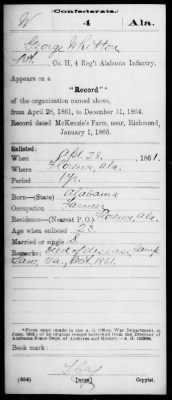 Confederate.
W 4 Ala.
George Whitton
Pvt., Co. H, 4 Reg't Alabama Infantry.
Appears on a
"Record"*
of the organization named above,
from April 28, 1861, to December 31, 1864.
Record dated McKenzie's Farm, near, Richmond,
January 1, 1865.
Enlisted:
When Apl. 28, 1861.
Where Florence, Ala.
Period 1 yr.
Born—(State) Alabama
Occupation Farmer
Residence—(Nearest P. O.) Florence, Ala.
Age when enlisted 23
Married or single S.
Remarks: Died of disease, Camp
Law, Va., Oct. 1861.
*From copy (made in the A. G. Office, War Department in
of an original record borrowed from the Director of
Alabama State Dept. of Archives and History—A. G.
Book mark:
(656) Copyist.